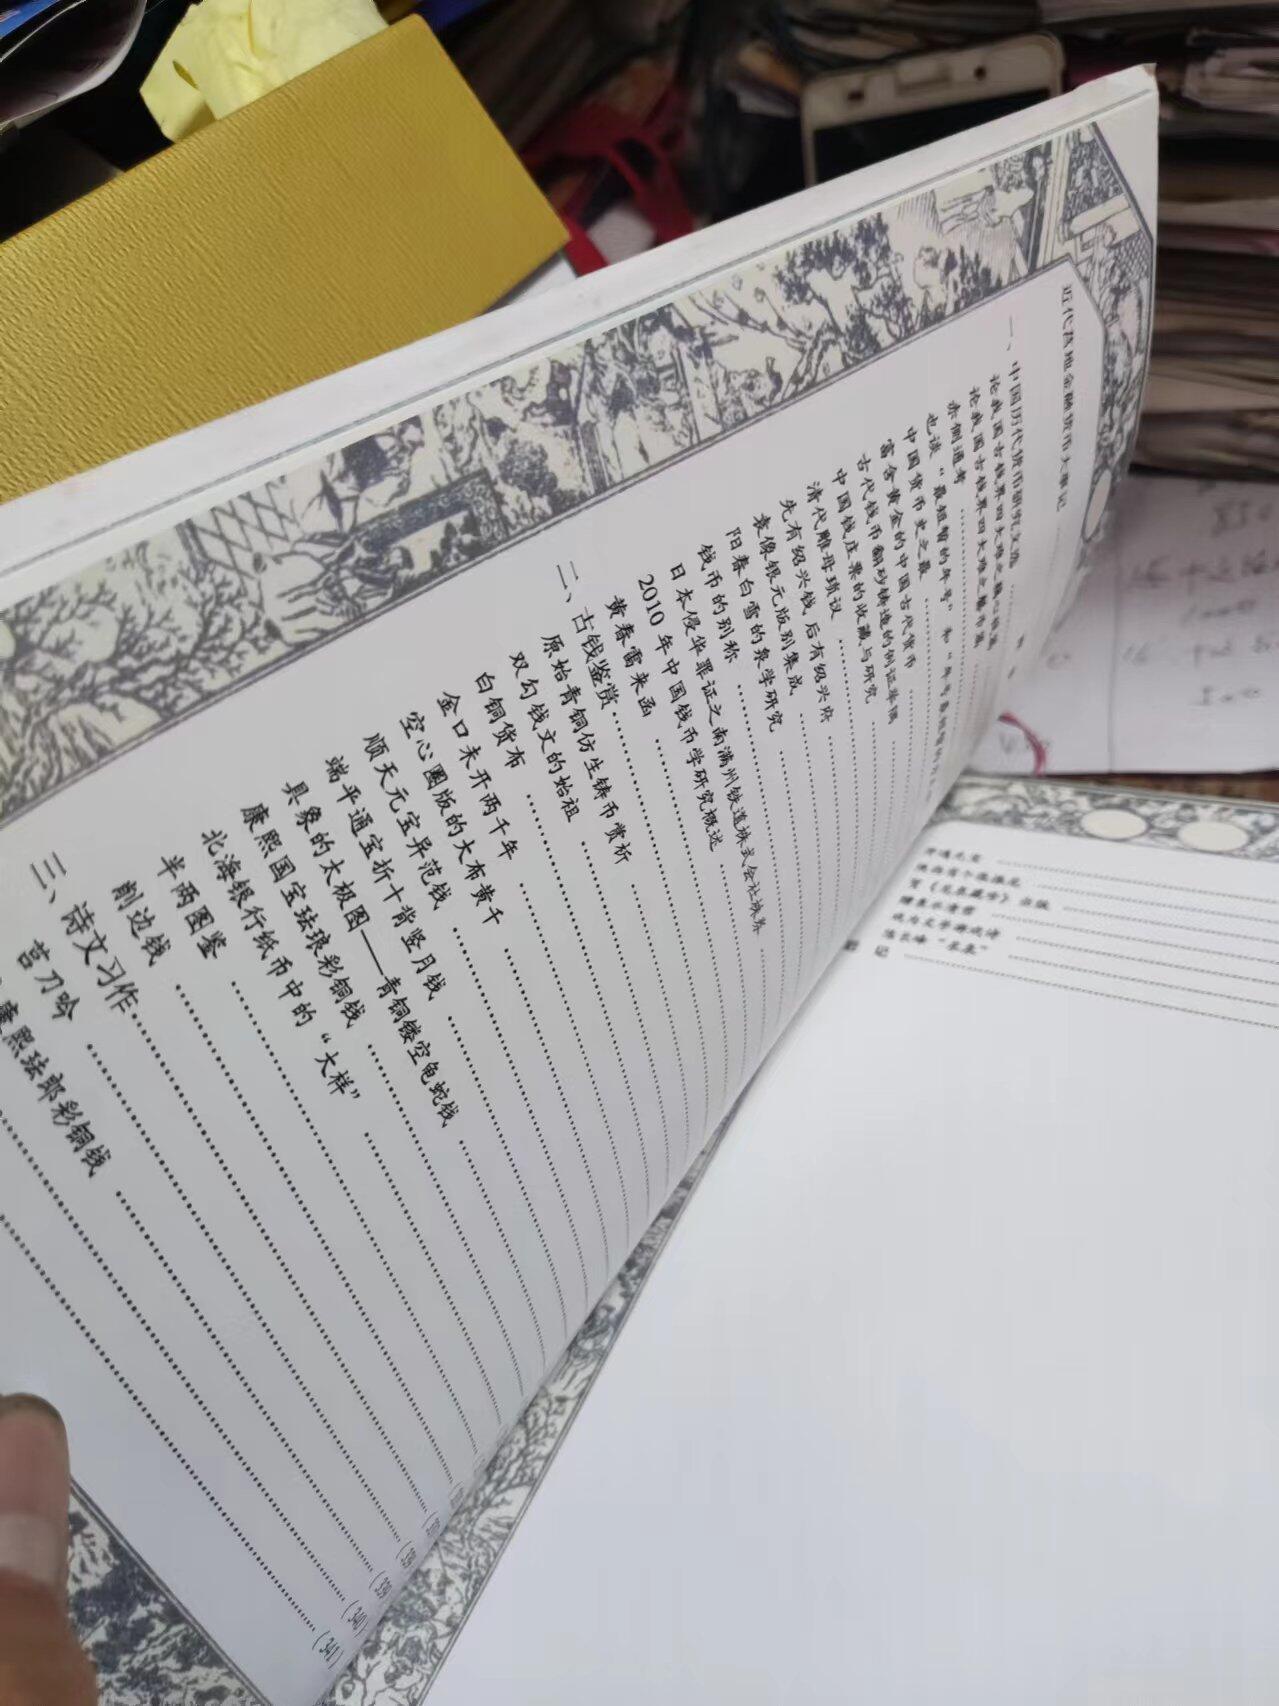 近代各地金融货币大事记
一、中国历代货币研究文选
论我国古钱界四大难之
论我国古钱界四大难之
赤侧通考
也谈“最短暂的年号”和“年号
中国货币史之最
富含黄金的中国古代货币
古代钱币翻砂铸造的例证举隅
中国钱庄票的收藏与研究
清代雕母琐议
先有绍兴钱后有绍兴府
袁像银元版别集成
阳春白雪的泉学研究
钱币的别称
日本侵华罪证之南满州铁道株式会社株券
2010 年中国钱币学研究概述
黄春雷来函
二、古钱鉴赏
原始青铜仿生铸币赏析
双勾钱文的始祖
白铜货布
金口未开两千年
空心圈版的大布黄千
顺天元宝异范钱
端平通宝折十背竖月钱
具象的太极图——青铜镂空龟蛇钱
康熙国宝珐琅彩铜钱
北海银行纸币中的“大样”
半两图鉴
削边钱
三、诗文习作
吾刀吟
康熙珐郎彩铜钱
(339)
(340)
(341)
开通元宝
贺《 》出版
戏为文字游戏诗
记